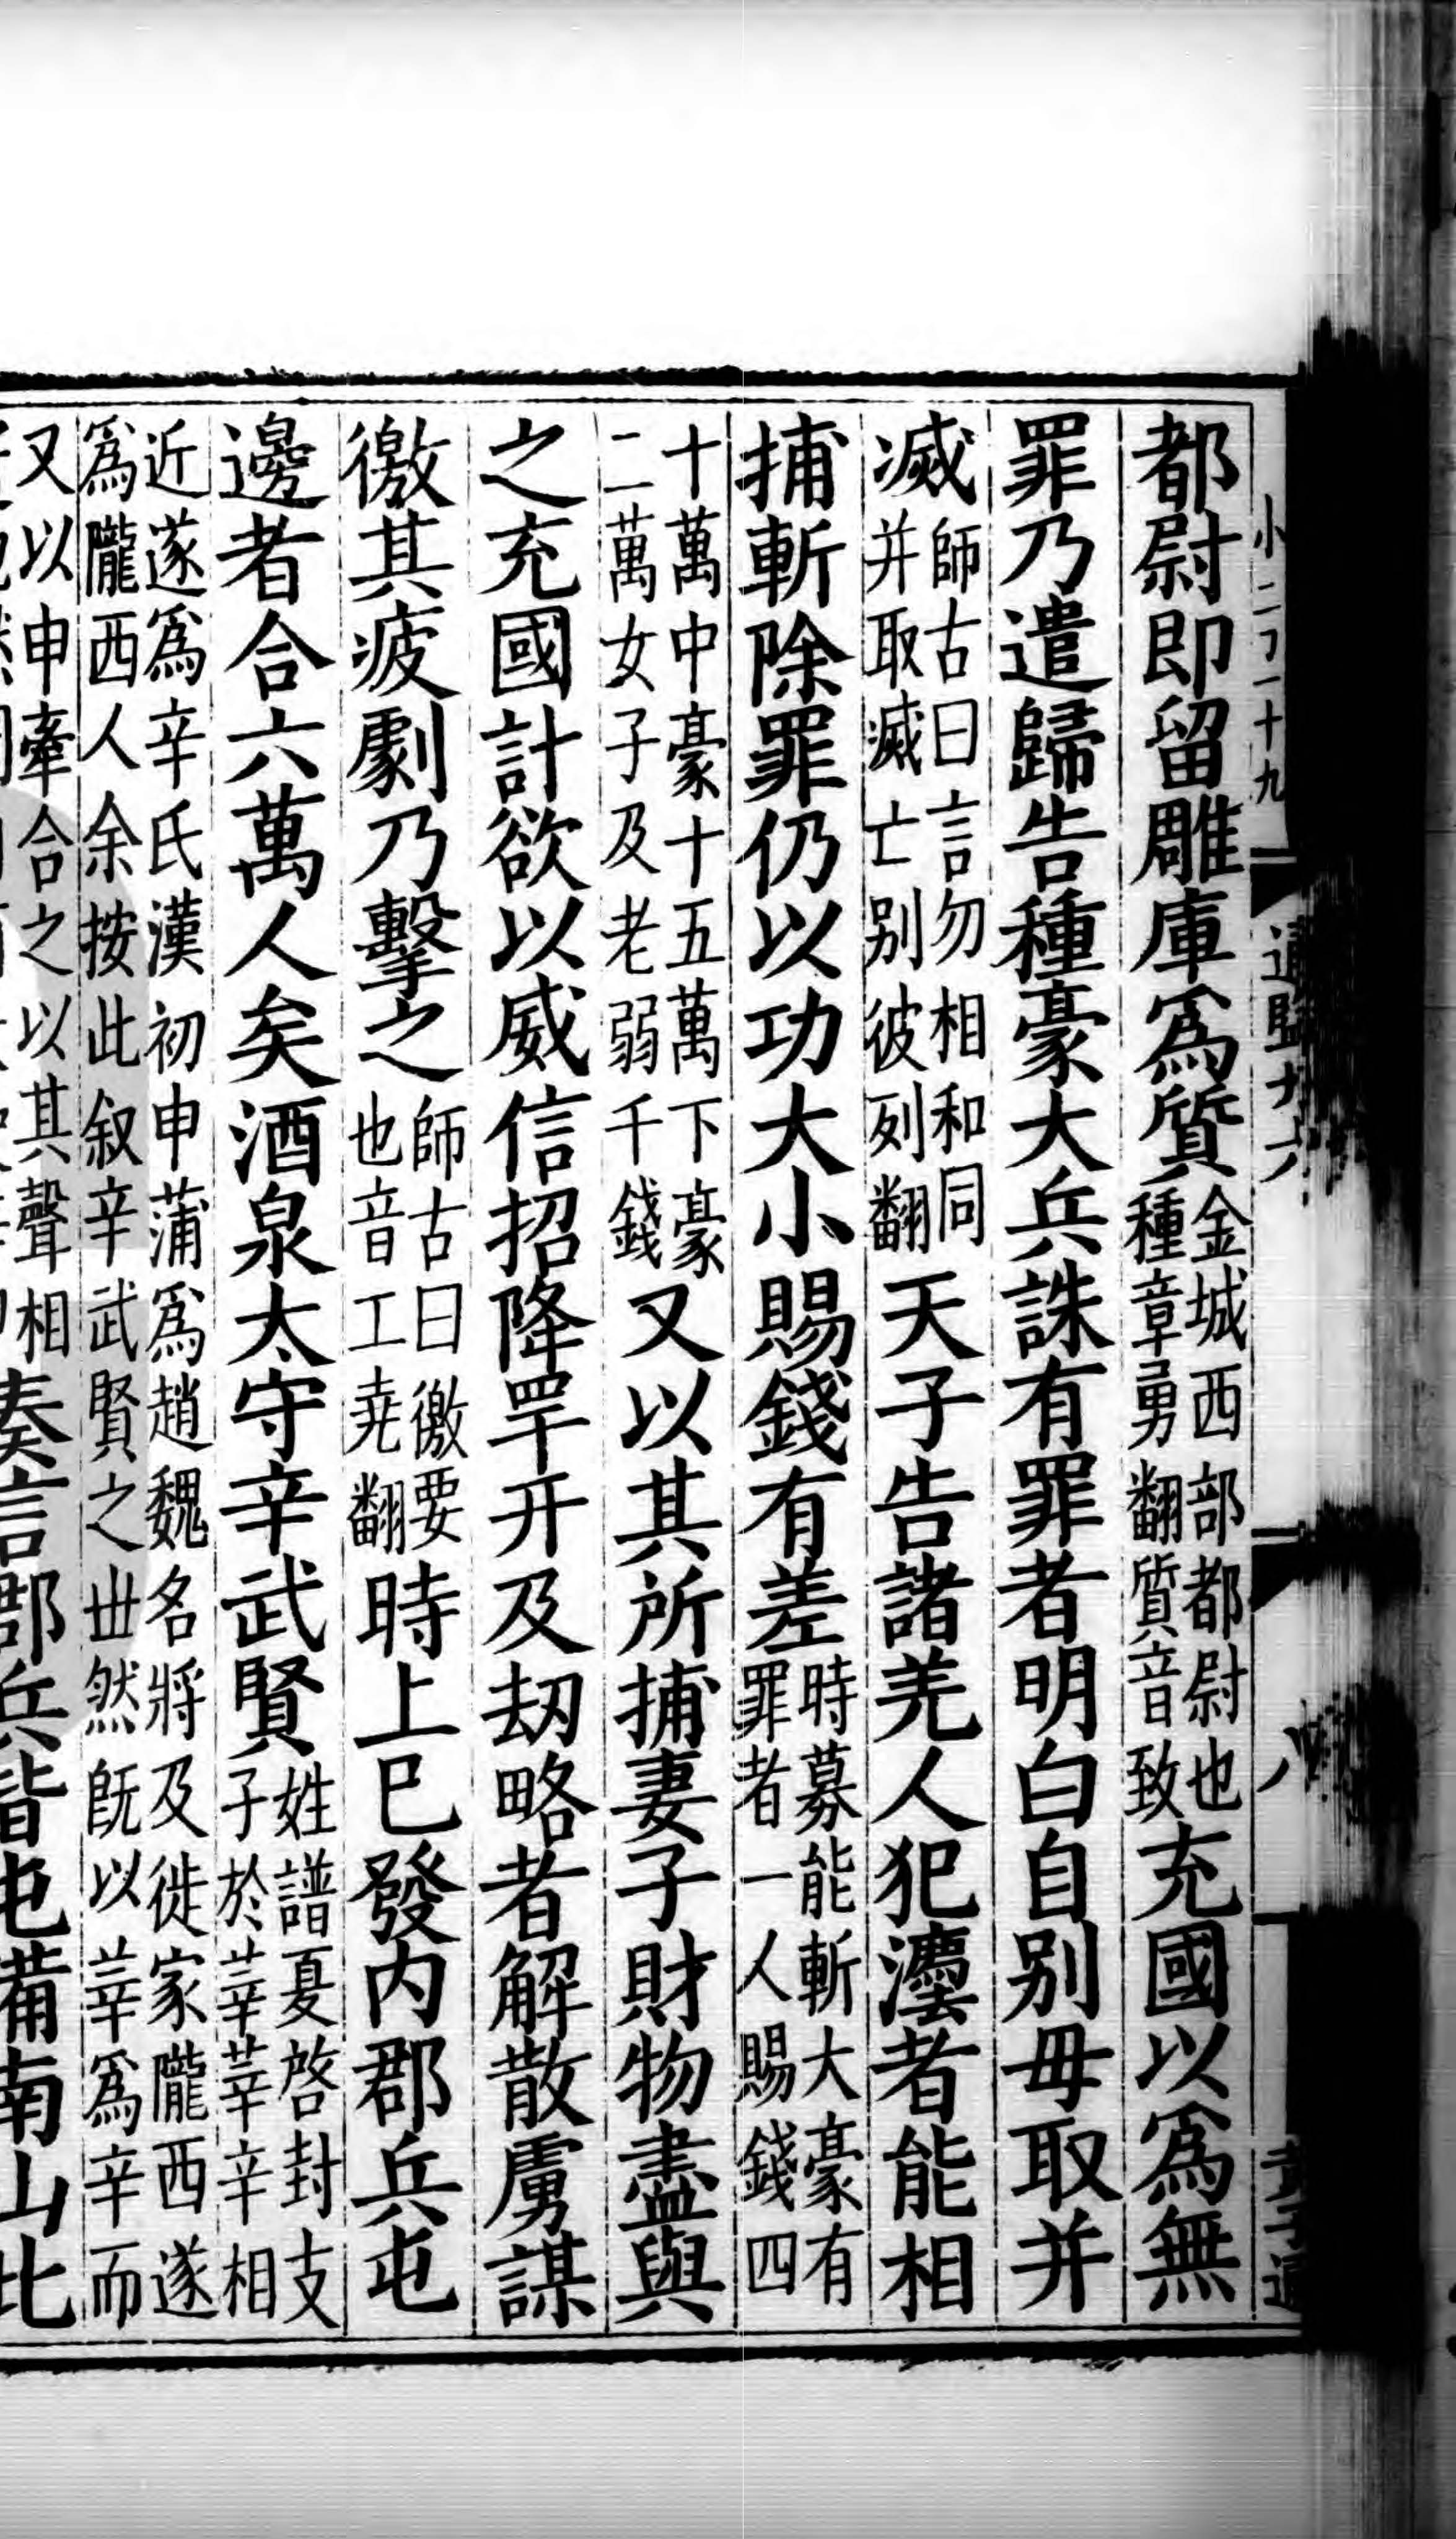 小二丁一十九
通鑑廿六
八
都尉即留雕庫爲質金城西部都尉也種章勇翻質音致充國以爲無
罪乃遣歸告種豪大兵誅有罪者明白自别毋取并
滅師古曰言勿相和同并取滅亡别彼列翻天子告諸羌人犯灋者能相
捕斬除罪仍以功大小賜錢有差時募能斬大豪有罪者一人賜錢四
十萬中豪十五萬下豪二萬女子及老弱千錢又以其所捕妻子財物盡與
之充國計欲以威信招降䍐幵及劫略者解散虜謀
徼其疲劇乃擊之師古曰徼要也音工堯翻時上已發内郡兵屯
邊者合六萬人矣酒泉太守辛武賢姓譜夏啓封支子於莘莘辛相
近遂爲辛氏漢初申蒲爲趙魏名將及徙家隴西遂爲隴西人余按此叙辛武賢之丗然旣以莘爲辛而
又以申牽合之以其聲相奏言郡兵皆屯備南山北